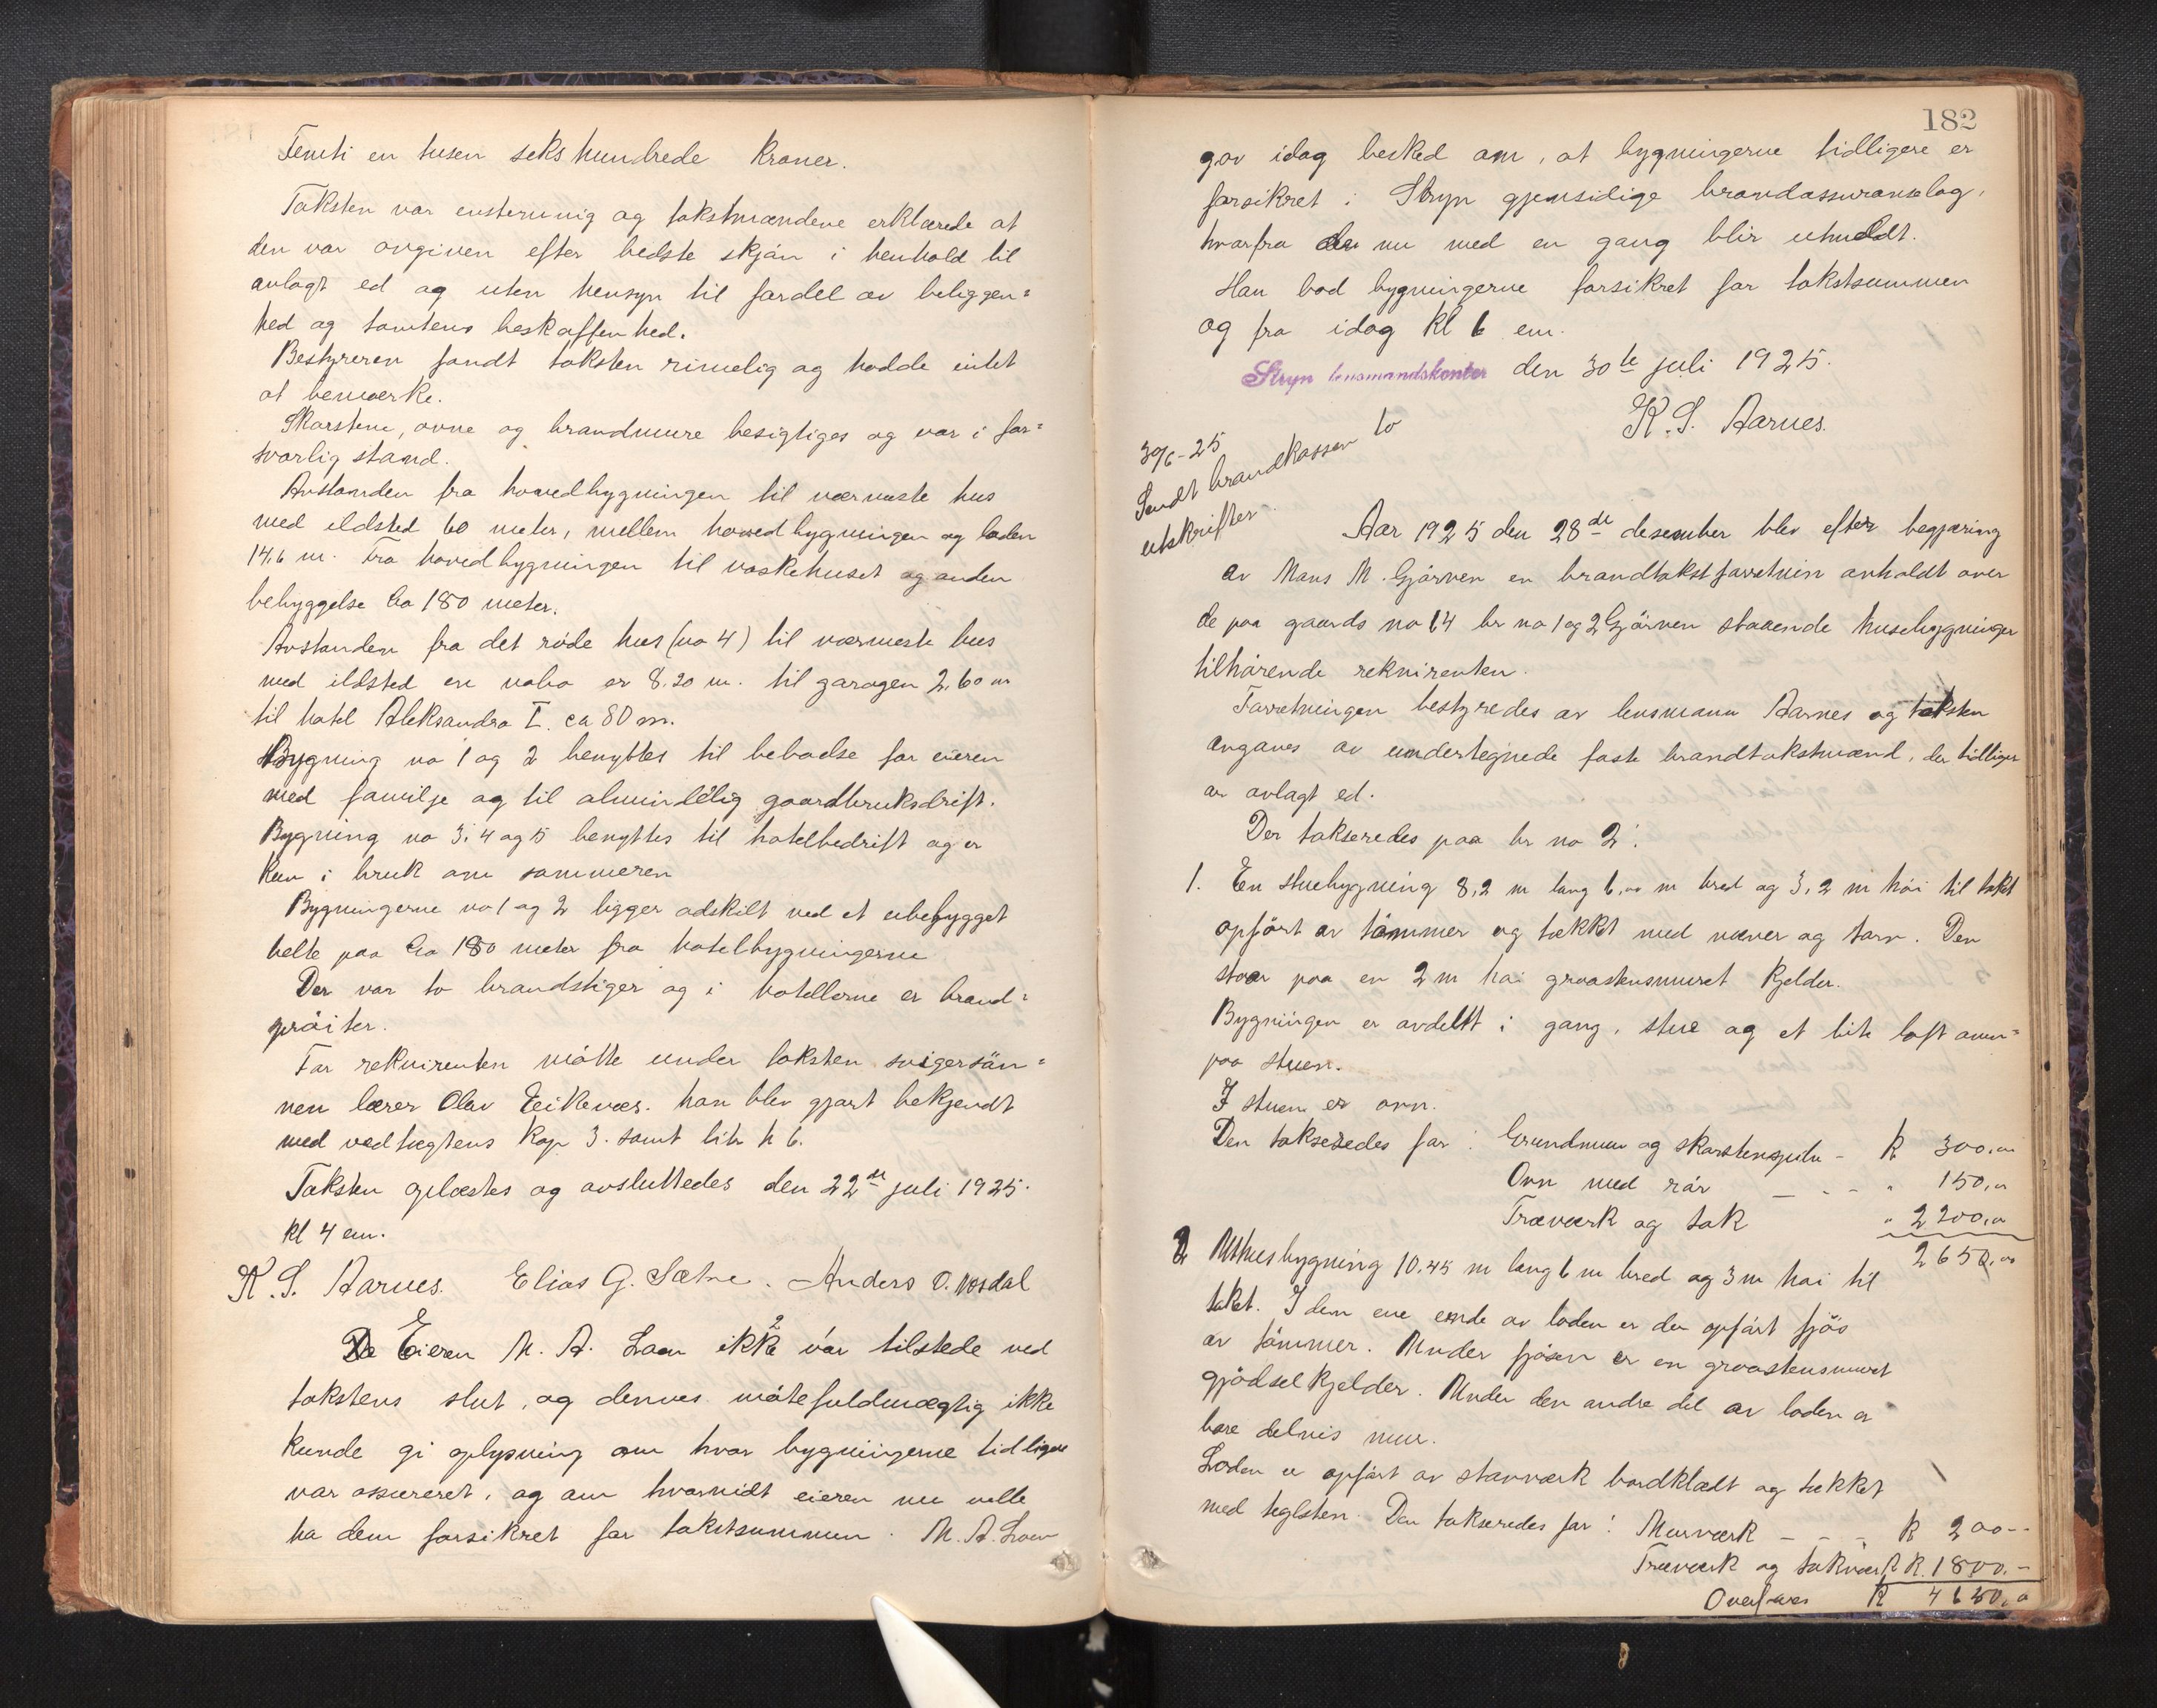 Femti en tusen sekshundrede kroner.
Taksten var enstemmig og takstmændene erklærede at
den var avgiven efter bedste skjøn i henhold til
avlagt ed og uten hensyn til fordel av beliggen=
hed og tomtens beskaffenhed.
Bestyreren fandt taksten rimelig og hadde intet
at bemærke.
Skorstene, ovne og brandmure besigtiges og var i for=
svarlig stand.
Avstanden fra hovedbygningen til nærmeste hus
med ildsted 60 meter, mellem hovedbygningen og laden
14,6 m. Fra hovedbygningen til vaskehuset og anden
bebyggelse ca 180 meter.
Avstanden fra det røde hus (no 4) til nærmeste hus
med ildsted en nabo er 8.20 m. til garagen 2,60 m
til hotel Aleksandra I. ca 80 m.
Bygning no 1 og 2 benyttes til beboelse for eieren
med familje og til almindelig gaardbruksdrift.
Bygning no 3. 4 og 5 benyttes til hotelbedrift og er
kun i bruk om sommeren
Bygningerne no 1 og 2 ligger adskilt ved et ubebygget
belte paa ca 180 meter fra hotelbygningerne
Der var to brandstiger og i hotellerne er brand=
sprøiter.
For rekvirenten møtte under taksten svigersøn=
nen lærer Olav Eikenæs. han blev gjort bekjendt
med vedtægtens kap 3. samt litr h 6.
Taksten oplæstes og avsluttedes den 22de juli 1925.
kl 4 em.
K. S. Aarnes. Elias G. Sætre. Anders O. Mosdal
Da Eieren M. A. Loen ikke var tilstede ved
takstens slut, og dennes møtefuldmægtig ikke
kunde gi oplysning om hvor bygningerne tidligere
var assureret, og om hvorvidt eieren nu vilde
ha dem forsikret for takstsummen. M. A. Loen
182
gav idag besked om, at bygningerne tidligere er
forsikret i Stryn gjensidige brandassuranselag,
hvorfra de nu med en gang blir utmeldt.
Han bad bygningerne forsikret for takstsummen
og fra idag kl 6 em.
Stryn lensmandskontor den 30te juli 1925.
K. S. Aarnes.
30/6-25
Sendt brandkassen to
utskrifter.
Aar 1925 den 28de desember blev efter begjæring
av Mons M. Gjørven en brandtakstforretnin avholdt over
de paa gaards no 14 br no 1 og 2 Gjørven staaende husebygninger
tilhørende rekvirenten.
Forretningen bestyredes av lensmann Aarnes og taksten
avgaves av undertegnede faste brandtakstmænd, der tidliger
av avlagt ed.
Der takseredes paa br no 2:
1. En stuebygning 8,2 m lang 6,00 m bred og 3,2 m høi til taket
opført av tømmer og tækket med næver og torv. Den
staar paa en 2 m høi graastensmuret kjelder.
Bygningen er avdelt i gang, stue og et lite loft oven=
paa stuen.
I stuen er ovn.
Den takseredes for: Grundmur og skorstenspibe - K 300.00
Ovn med rør - - - " 150,00
Træverk og tak " 2200,00
2650,00
2 Uthusbygning 10.45 m lang 6 m bred og 3 m høi til
taket. I den ene ende av løden er der opført fjøs
av tømmer. Under fjøsen er en graastensmuret
gjødselkjelder. Under den andre del av løden er
bare delvis mur.
Løden er opført av stavværk bordklædt og tækket
med teglsten. Den takseredes for: Murværk - - - K 200--
Træværk og takværk K. 1800.-
Overføres K 4650,00